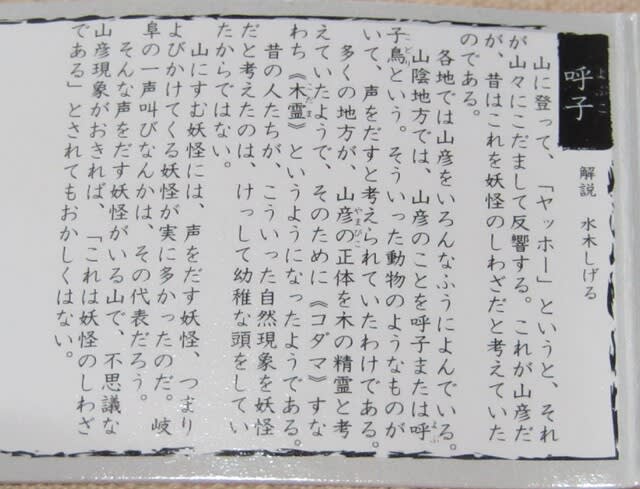 呼子
よぶこ
解説 水木しげる
山に登って、「ヤッホー」というと、それ
が山々にこだまして反響する。これが山彦だ
が、昔はこれを妖怪のしわざだと考えていた
のである。
各地では山彦をいろんなふうによんでいる。
山陰地方では、山彦のことを呼子または呼
子鳥という。そういった動物のようなものが
いて、声をだすと考えられていたわけである。
多くの地方が、山彦の正体を木の精霊と考
えていたようで、そのために《コダマ》すな
わち《木霊》というようになったようである。
昔の人たちが、こういった自然現象を妖怪
だと考えたのは、けっして幼稚な頭をしてい
たからではない。
山にすむ妖怪には、声をだす妖怪、つまり
よびかけてくる妖怪が実に多かったのだ。岐
阜の一声叫びなんかは、その代表だろう。
そんな声をだす妖怪がいる山で、不思議な
山彦現象がおきれば、「これは妖怪のしわざ
である」とされてもおかしくはない。